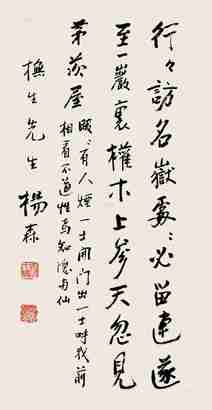 行々訪名嶽處々必留連遂
至一巖裏權木上參天忽見
茅茨屋曖々有人煙一士開門出一士呼我前
相看不道姓焉知隱與仙
生先生 楊森